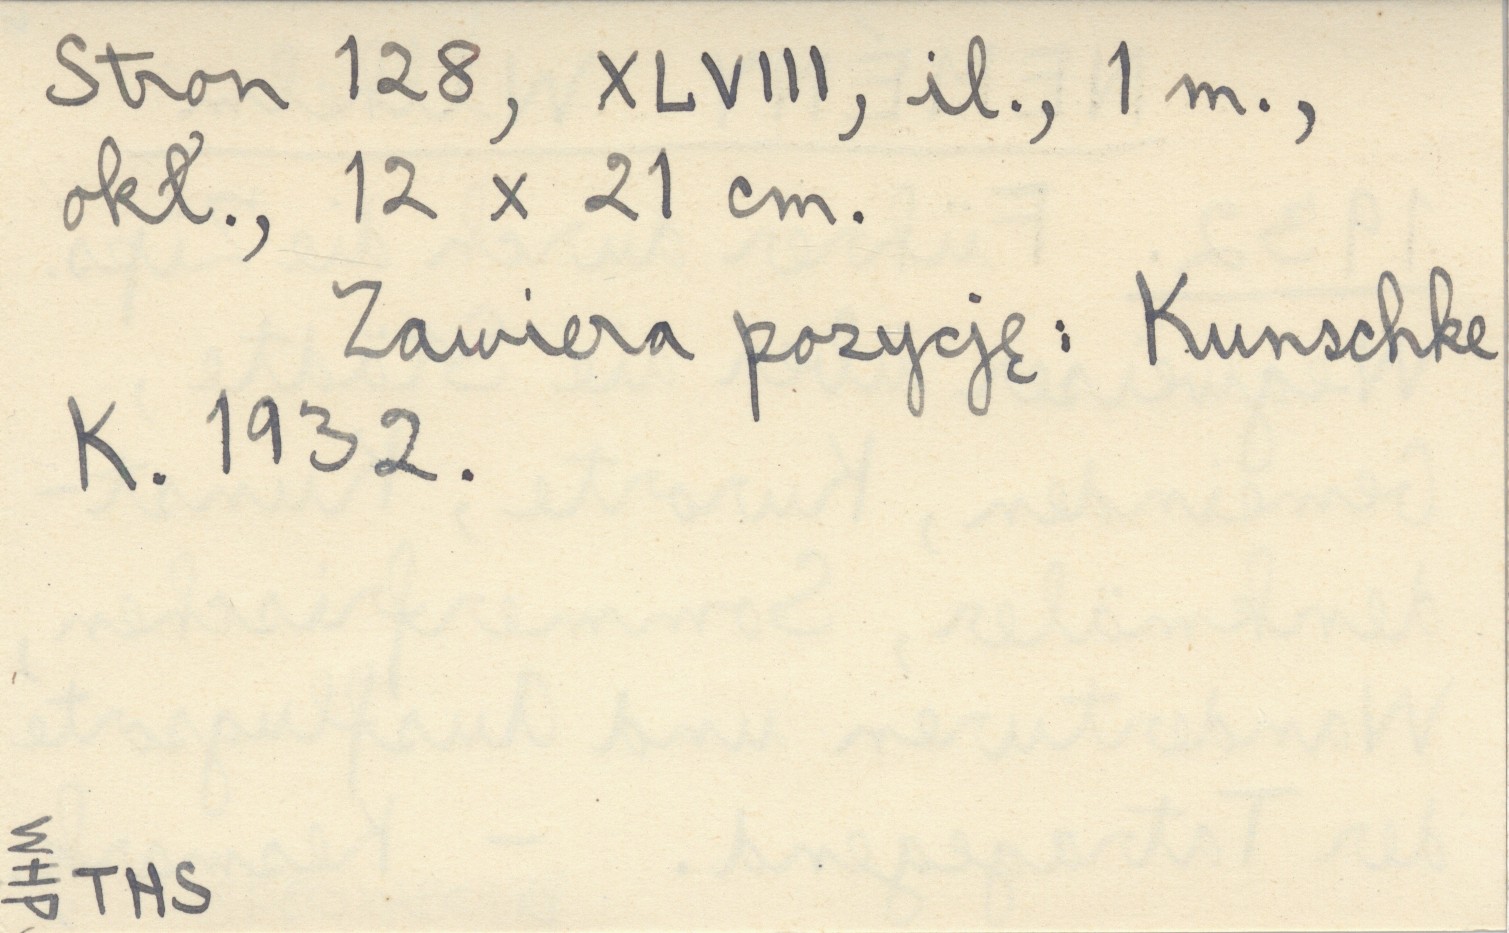 Stron 128, XLVIII, il., 1 m.,
okł., 12 x 21 cm.
Zawiera pozycję: Kunschke
K. 1932.
WHP
THS